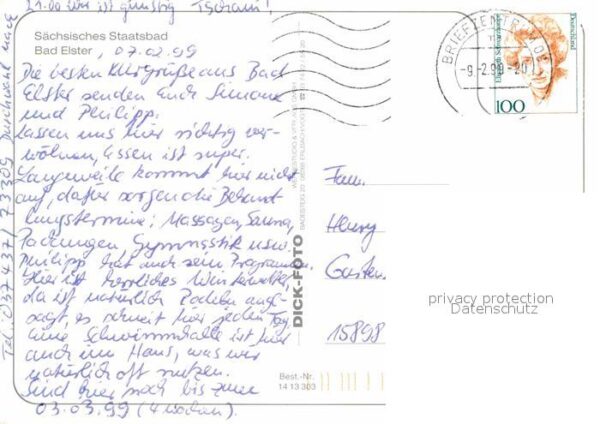 21.00 Uhr ist günstig Tschau!
Sächsisches Staatsbad
Bad Elster, 07.02.99
Die besten Kurgrüße aus Bad
Elster senden euch Simone
und Philipp.
Lassen uns hier richtig ver-
wöhnen, Essen ist super.
Langeweile kommt hier nicht
auf, dafür sorgen die Behand-
lungstermine; Massagen, Sauna,
Packungen, Gymnastik usw.
Philipp hat auch sein Programm.
Hier ist herrliches Winterwetter,
da ist natürlich Rodeln ange-
sagt, es schneit hier jeden Tag.
Eine Schwimmhalle ist hier
auch im Haus, was wir
natürlich oft nutzen.
Sind hier noch bis zum
03.03.99 (4 Wochen).
Tel. 037437/73309 Durchwahl nach
DICK-FOTO
Best.-Nr.
14 13 303
BRIEFZENTRUM
-9.-2.99-20
Deutschland
100
Fam.
Henry
15898
privacy protection
Datenschutz